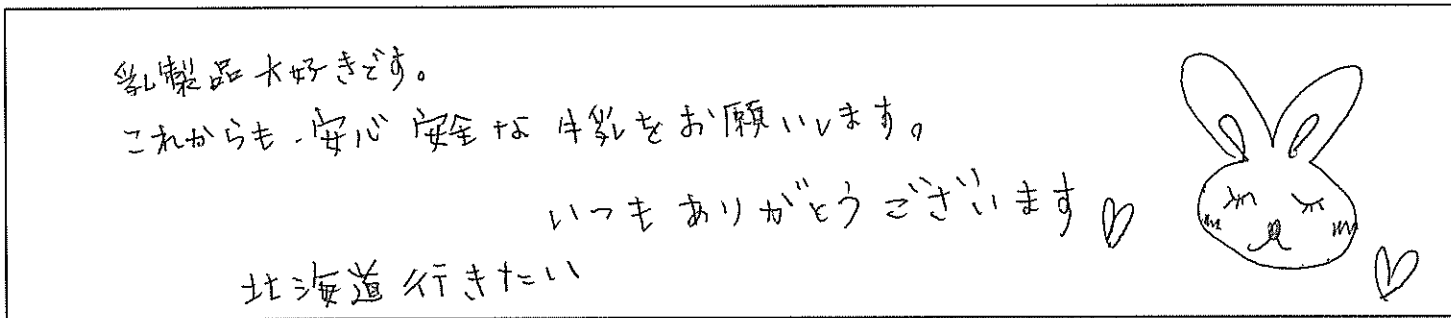 乳製品大好きです。
これからも、安心安全な牛乳をお願いします。
いつもありがとうございます♡
北海道行きたい